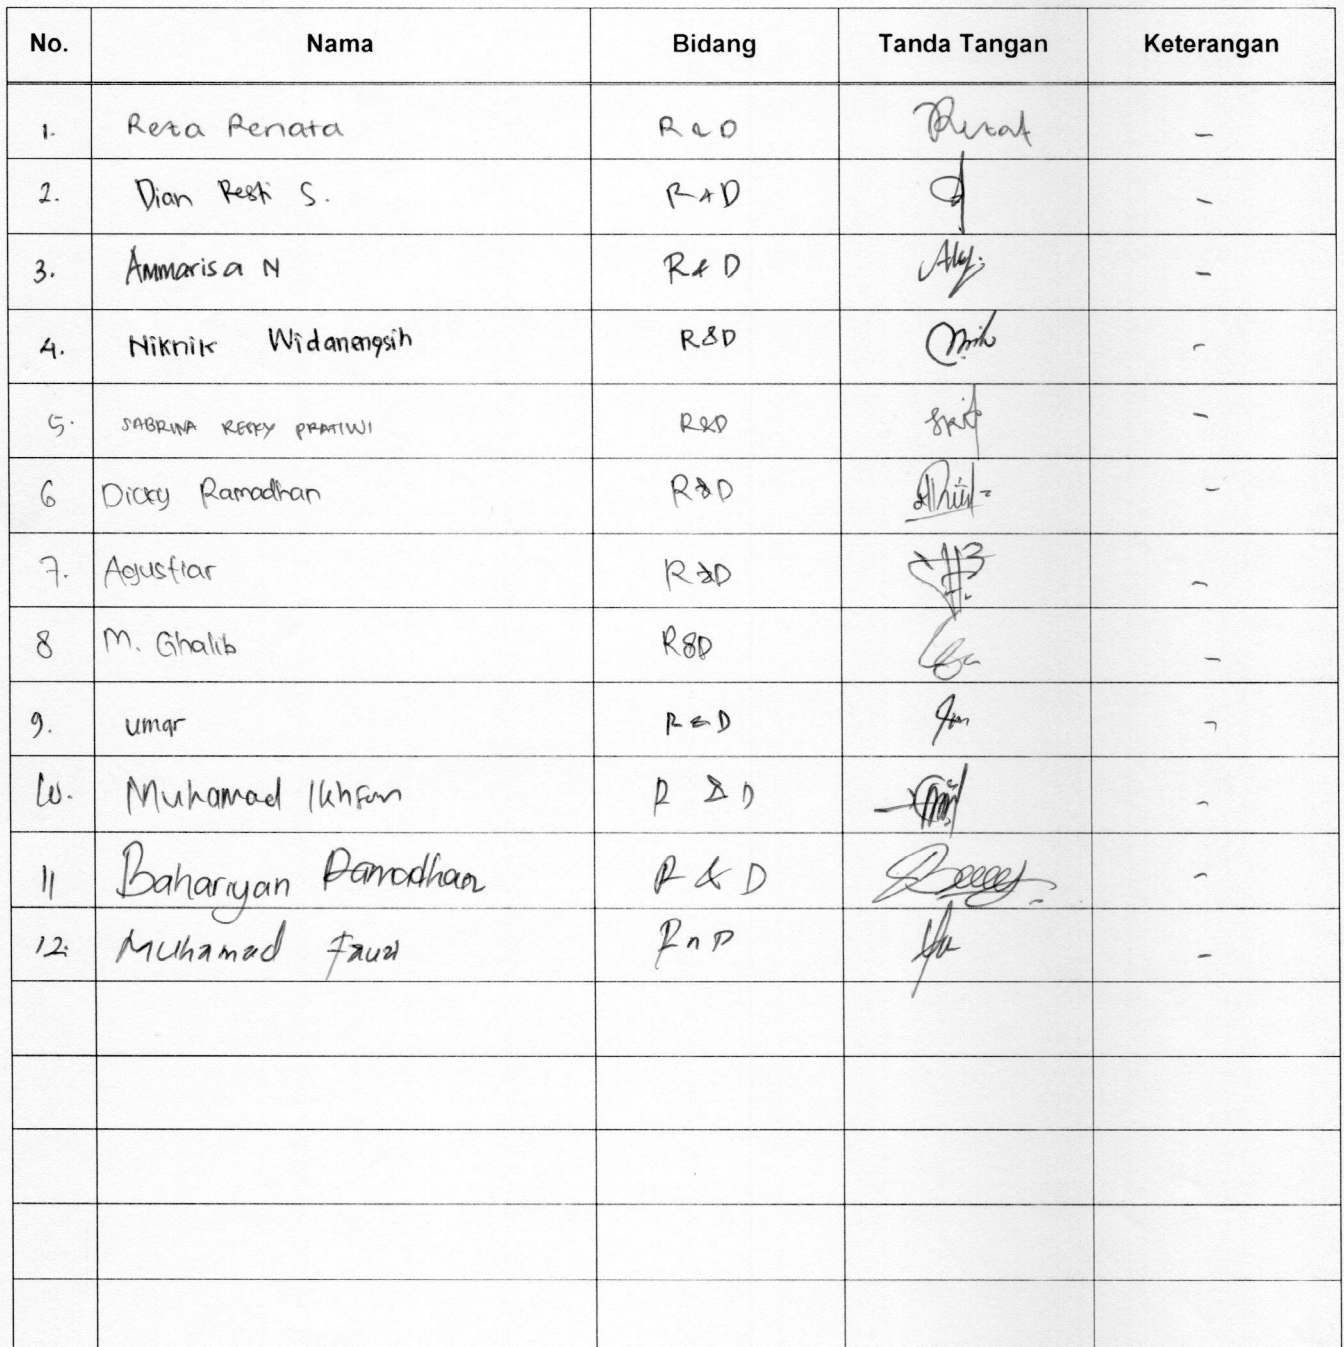 No. Nama Bidang Tanda Tangan Keterangan
1. Reza Renata R & D -
2. Dian Resti S. R & D -
3. Ammarisa N R & D -
4. Niknik Widanengsih R&D -
5. SABRINA RESKY PRATIWI R&D -
6 Dicky Ramadhan R&D -
7. Agustiar R&D -
8 M. Ghalib R&D -
9. umar R & D -
10. Muhamad Ikhsan R & D -
11 Bahariyan Ramadhan R & D -
12. Muhamad Fauzi R n D -